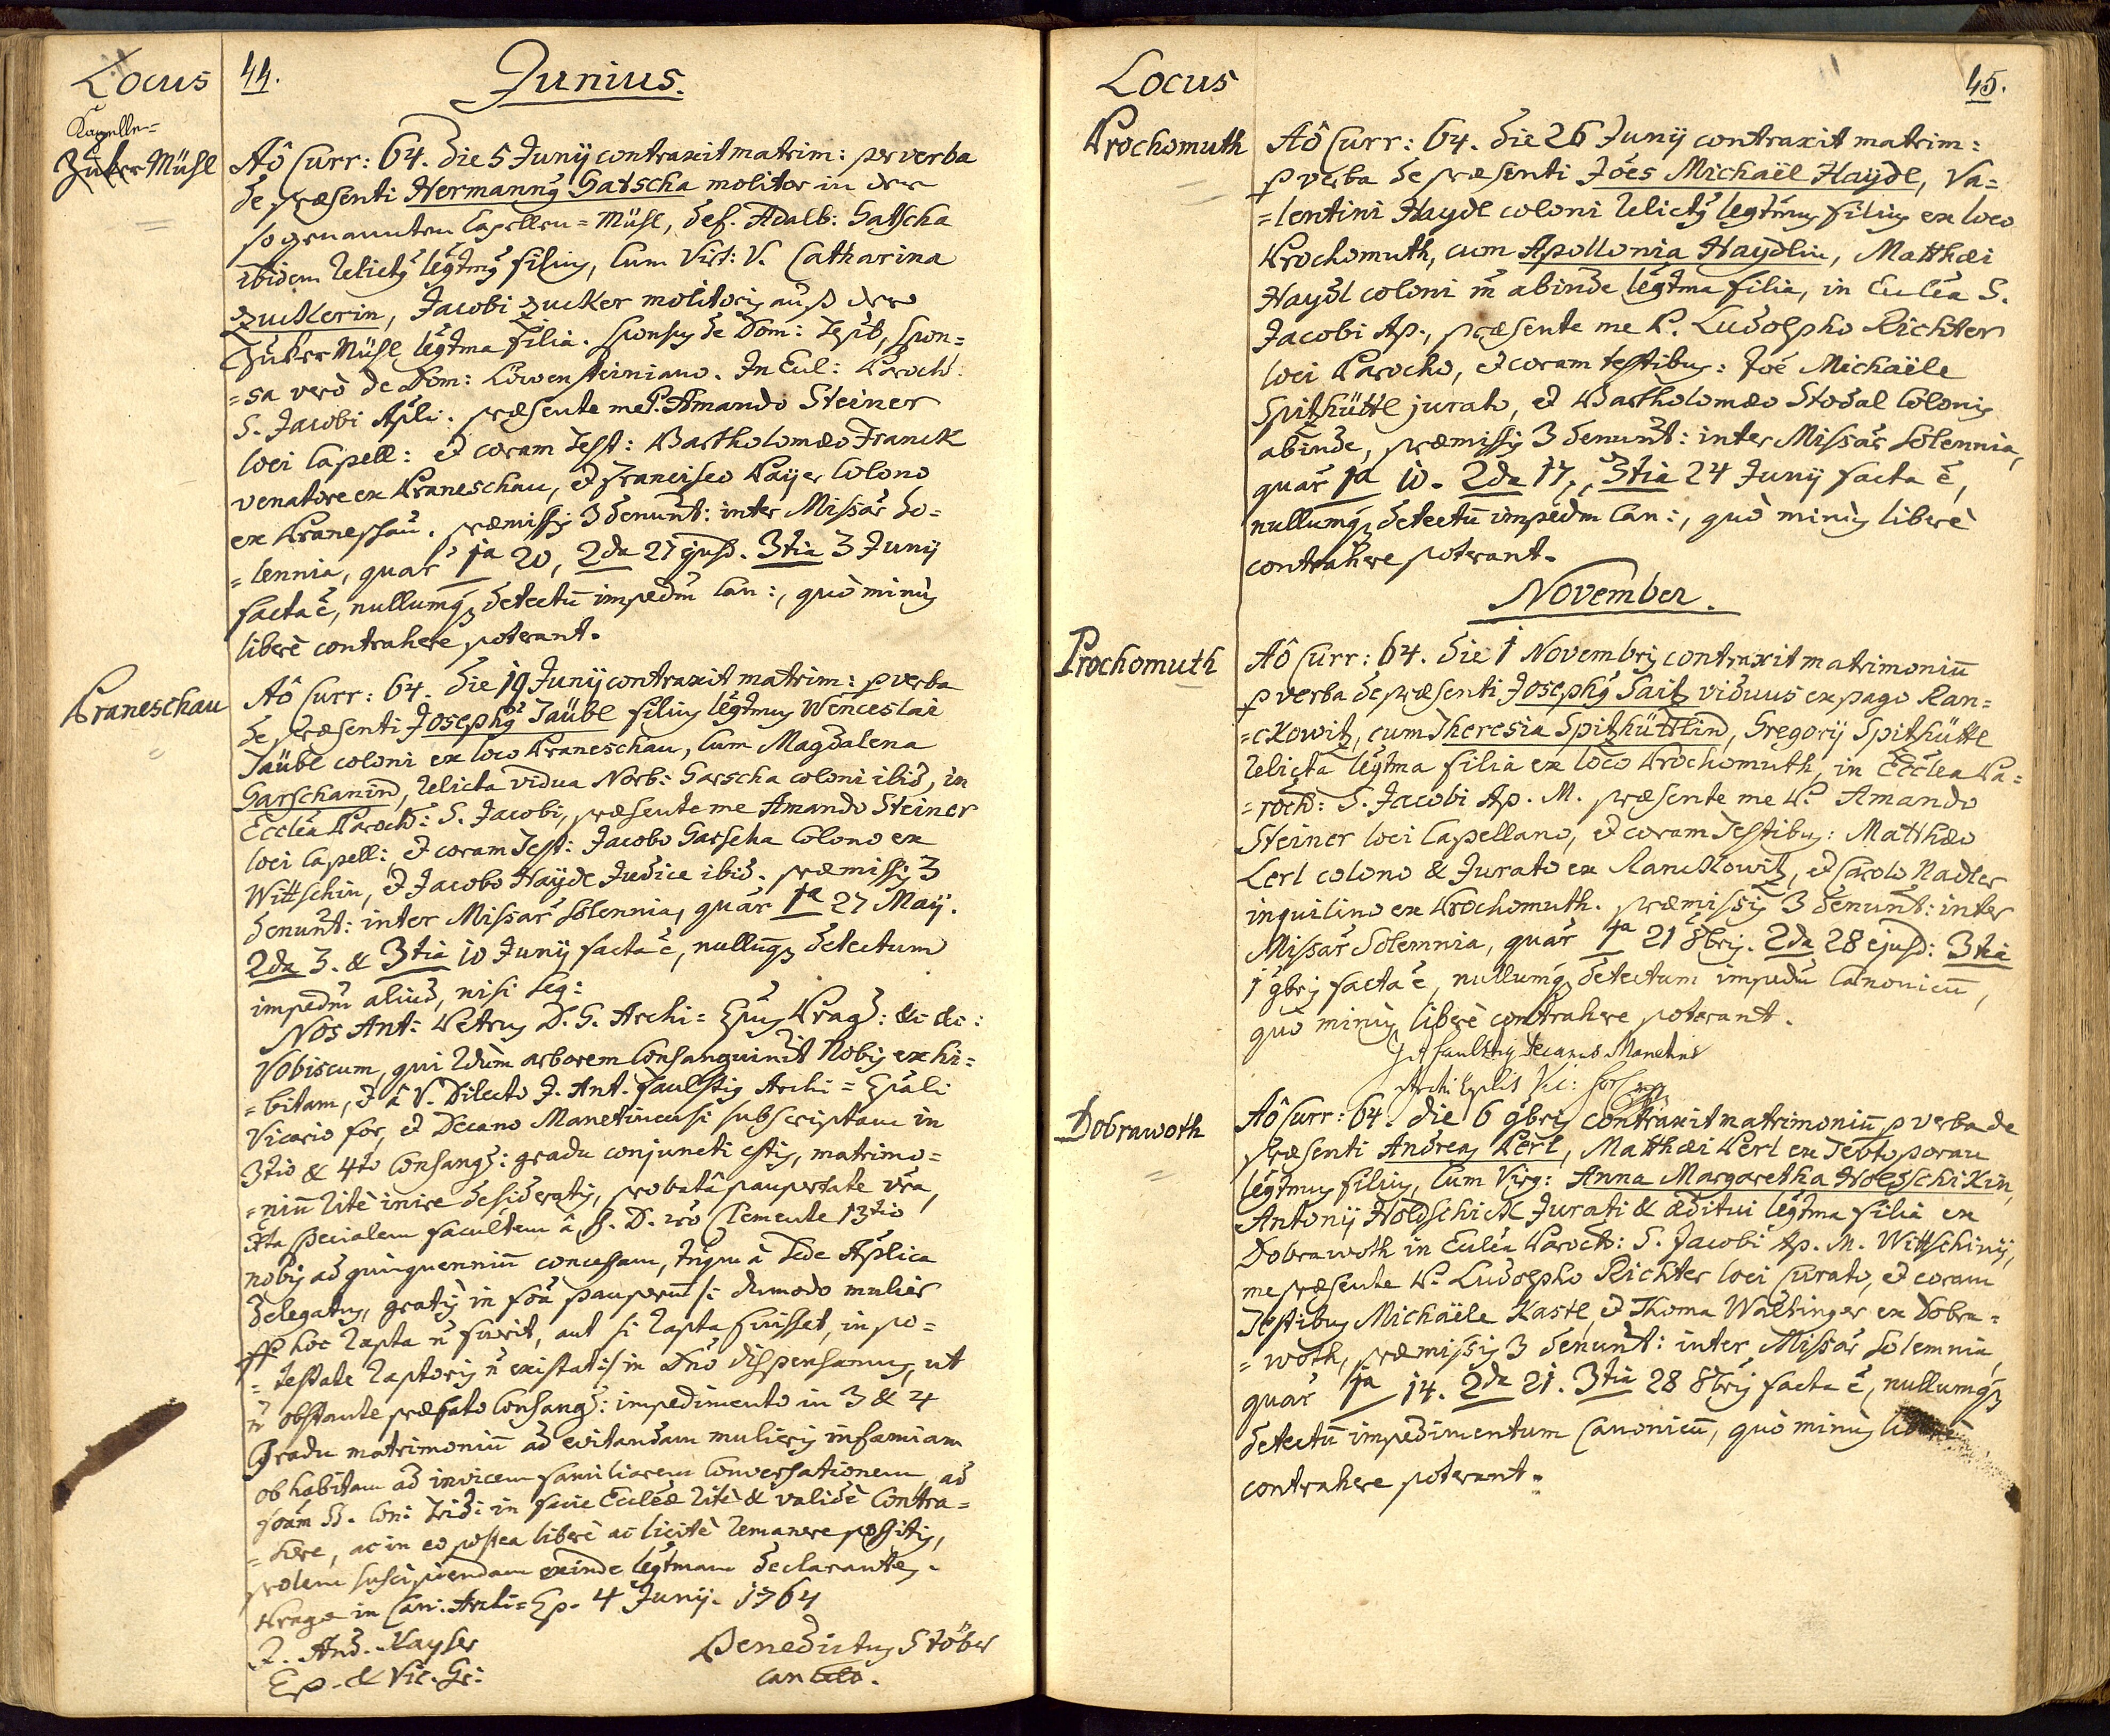 Locus
44.
Junius.
Kapelle=
Zuker Mühl
Aô Curr: 64. die 5 Junÿ contraxit matrim: per verba
de præsenti Hermannꝰ Gatscha molitor in der
so genannten Capellen=Mühl, def. Adalb: Gatscha
ibidem relictꝰ legtmꝰ filius, cum Virt: V. Catharina
Zuckerin, Jacobi Zucker molitoris auß der
Zuker Mühl legtma filia. sponsus de Dom: Tepl, spon=
=sa verò de Dom: Löwensteiniano. In Eccl: Paroch:
S. Jacobi Apli: præsente me P. Amando Steiner
loci Capell: et coram Test: Bartholomæo Franck
venatore ex Praneschau, et Francisco Payer Colono
ex Praneschau. præmissis 3 denunt: inter Missar̃ So=
=lennia, quar̃ 1a 20, 2da 27 ejusd. 3tia 3 Junÿ
facta ē, nullumq detectū impedm̃ Can:, quò minus
liberè contrahere poterant.
Praneschau
Aô Curr: 64. die 19 Junÿ contraxit matrim: p verba
de præsenti Josephꝰ Täubl filius legtmus Wenceslai
Täubl coloni ex loco Praneschau, cum Magdalena
Garschanin, relicta vidua Norb: Garscha coloni ibid, in
Eccleã Paroch: S. Jacobi, præsente me Amando Steiner
loci Capell: et coram Test: Jacobo Garscha Colono ex
Wittschin, et Jacobo Haÿdl Judice ibid. præmissis 3
denunt: inter Missar̃ Solennia, quar̃ 1a 27 Maÿ.
2da 3. & 3tia 10 Junÿ facta ē, nullumq detectum
impedm̃ aliud, nisi seq:
Nos Ant: Petrus D. G. Archi=Epus Prag: &c &c:
Vobiscum, qui 2dum arborem Consanguinit Nobis exhi=
=bitam, et à V. Dilecto J. Ant. Faulstig Archi=Epali
Vicario for, et Decano Manetinensi subscriptam in
3tio & 4to Consang: gradu conjuncti estis, matrimo=
=niū ritè inire desideratis, probatâ paupertate vrã,
Jxta specialem facultem à S. D. nrõ Clemente 13tio
nobis ad quinquenniū concessam, tñqm à Sede Aplica
delegatus, gratis in forã pauperum /: dummodo mulier
ppr hoc rapta ñ fuerit, aut si rapta fuisset, in po=
=testate raptoris ñ existat :/ in Dnõ dispensamus, ut
ñ obstante præfato Consang: impedimento in 3 & 4
Gradu matrimoniū ad evitandam mulieris infamiam
ob habitam ad invicem familiarem Conversationem, ad
formã SS. Con: Trid: in facie Eccleæ ritè & validè Contra=
=here, ac in eo postea liberè ac licitè remanere possitis,
prolem suscipiendam exinde legtmam declarantes.
Pragæ in Can: Archi=Ep. 4 Junÿ. 1764
J. And. Kayser
Ep. & Vic. G:
Benedictus Stöber
Cancell.
Locus
45.
Prochomuth
Aô Curr: 64. die 26 Junÿ contraxit matrim:
p verba de præsenti Joẽs Michaël Haydl, Va=
=lentini Haydl coloni relictꝰ legtmus filius ex loco
Prochomuth, cum Apollonia Haydlin, Matthæi
Haydl coloni abinde legtma filia, in Eccleã S.
Jacobi Ap., præsente me P. Ludolpho Richter
loci Parocho, et coram testibus: Joẽ Michaële
Spitzhüttl jurato, et Bartholomæo Stodal Colonis
abinde, præmissis 3 denunt: inter Missar̃ Solennia,
quar̃ 1a 10. 2da 17., 3tia 24 Junÿ facta ē,
nullumq detectū impedm̃ Can:, quò minus liberè
contrahere poterant.
November.
Prochomuth
Aô Curr: 64. die 1 Novembris contraxit matrimoniū
p verba de præsenti Josephꝰ Saitz viduus ex pago Ran=
=ckowitz, cum Theresia Spitzhüttlin, Gregorÿ Spitzhüttl
relicta legtma filia ex loco Prochomuth, in Eccleã Pa=
=roch: S. Jacobi Ap. M. præsente me P. Amando
Steiner loci Capellano, et coram Testibus: Matthæo
Lerl colono & Jurato ex Ranckowitz, et Carolo Nadler
inquilino ex Prochomuth. præmissis 3 denunt: inter
Missar̃ Solemnia, quar̃ 1a 21 8bris. 2da 28 ejusd: 3tia
1 9bris facta ē, nullumq detectum impedm̃ Canonicū,
quò minus liberè contrahere poterant.
Faulstig Decanus Manetins
Archi Eplis Vic: for
Dobrawoth
Aô Curr: 64. die 6 9bris contraxit matrimoniū p verba de
præsenti Andreas Perl, Matthæi Perl ex Teutoporau
legtmus filius, cum Virg: Anna Margaretha Holdschikin,
Antonÿ Holdschick Jurati & æditui legtma filia ex
Dobrawoth in Eccleã Paroch: S. Jacobi Ap. M. Wittschinÿ,
me præsente P. Ludolpho Richter loci Curato, et coram
Testibus Michaële Kastl, et Thoma Waltinger ex Dobra=
=woth, præmissis 3 denunt: inter Missar̃ Solemnia,
quar̃ 1a 14. 2da 21. 3tia 28 8bris facta ē, nullumq
detectū impedimentum Canonicū, quò minus liberè
contrahere poterant.